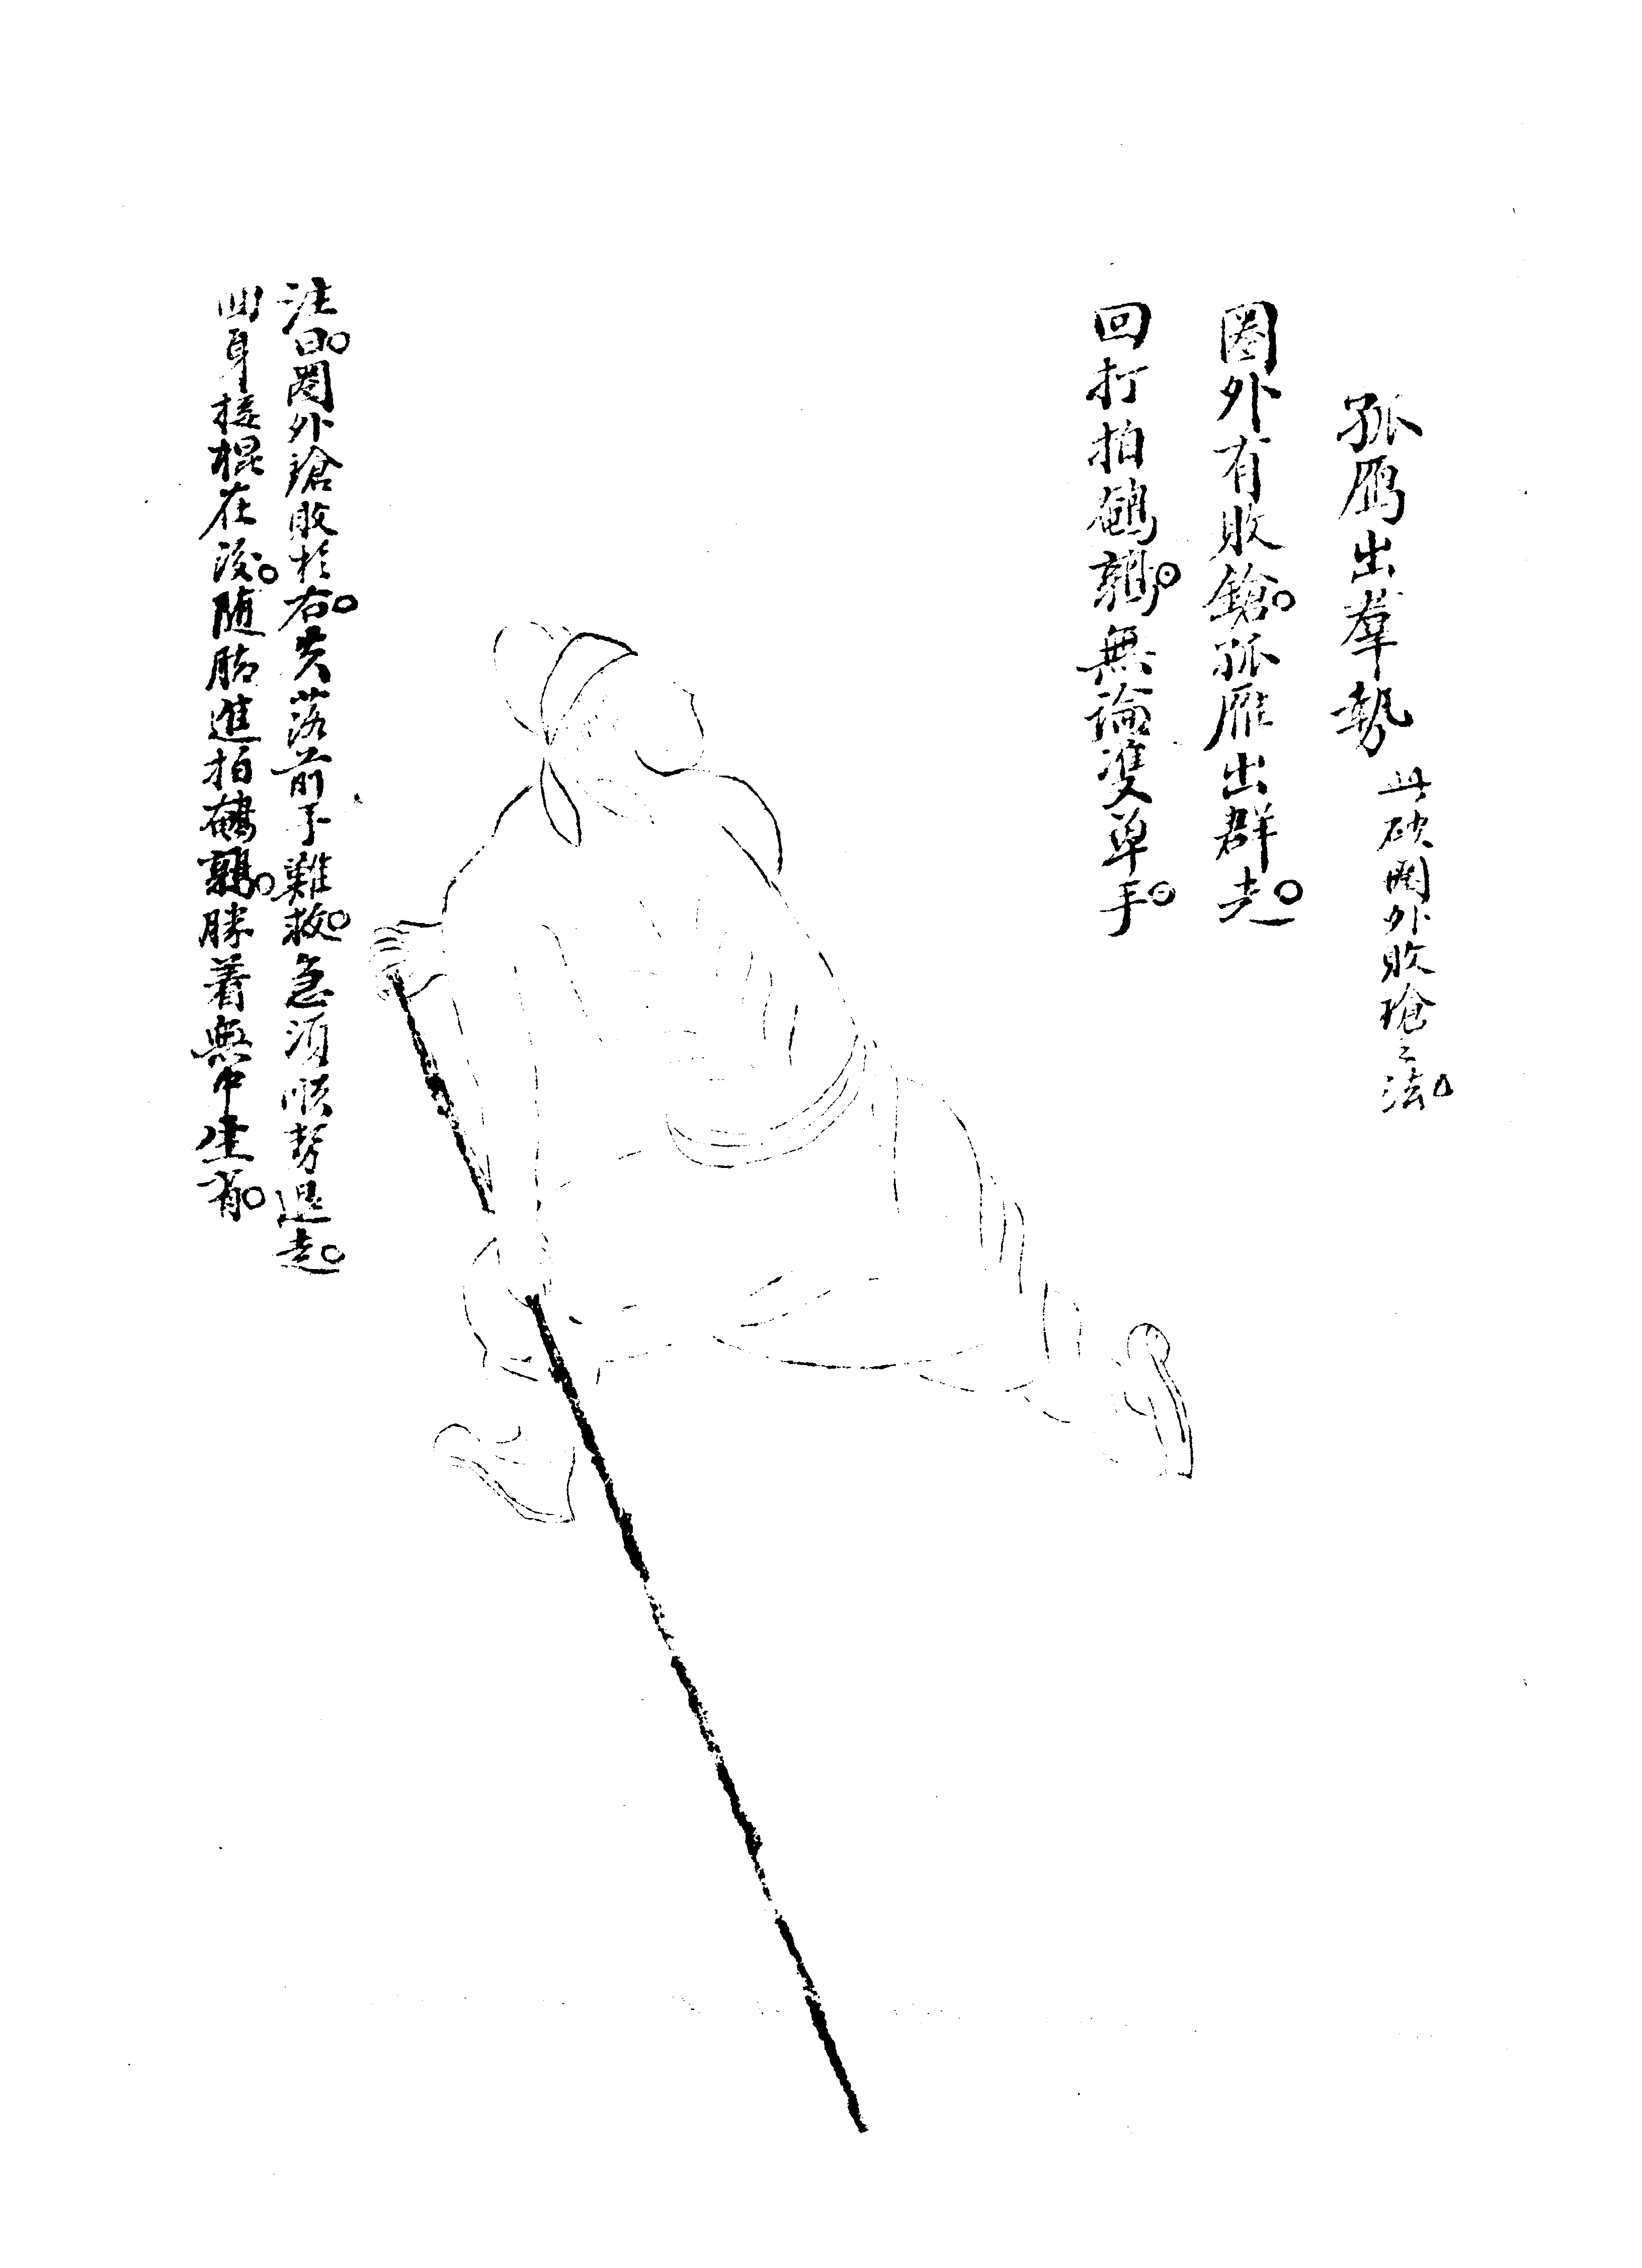 孤鴈出羣勢
此破圈外敗鎗之法
圈外有敗鎗孤雁出群走
回打拍鵪鶉無論雙单手
注曰圈外鎗敗扵右失落前手難救急須順势退走
回身棍在後随脚進拍鵪鶉勝着無中生有